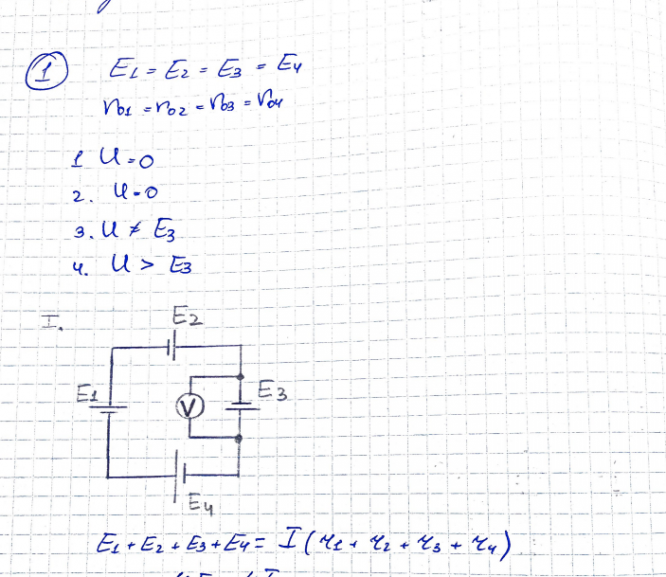 1 E1 = E2 = E3 = E4
r01 = r02 = r03 = r04
1 U = 0
2. U = 0
3. U ≠ E3
4. U > E3
I.
E2
E1
V
E3
E4
E1 + E2 + E3 + E4 = I (r1 + r2 + r3 + r4)